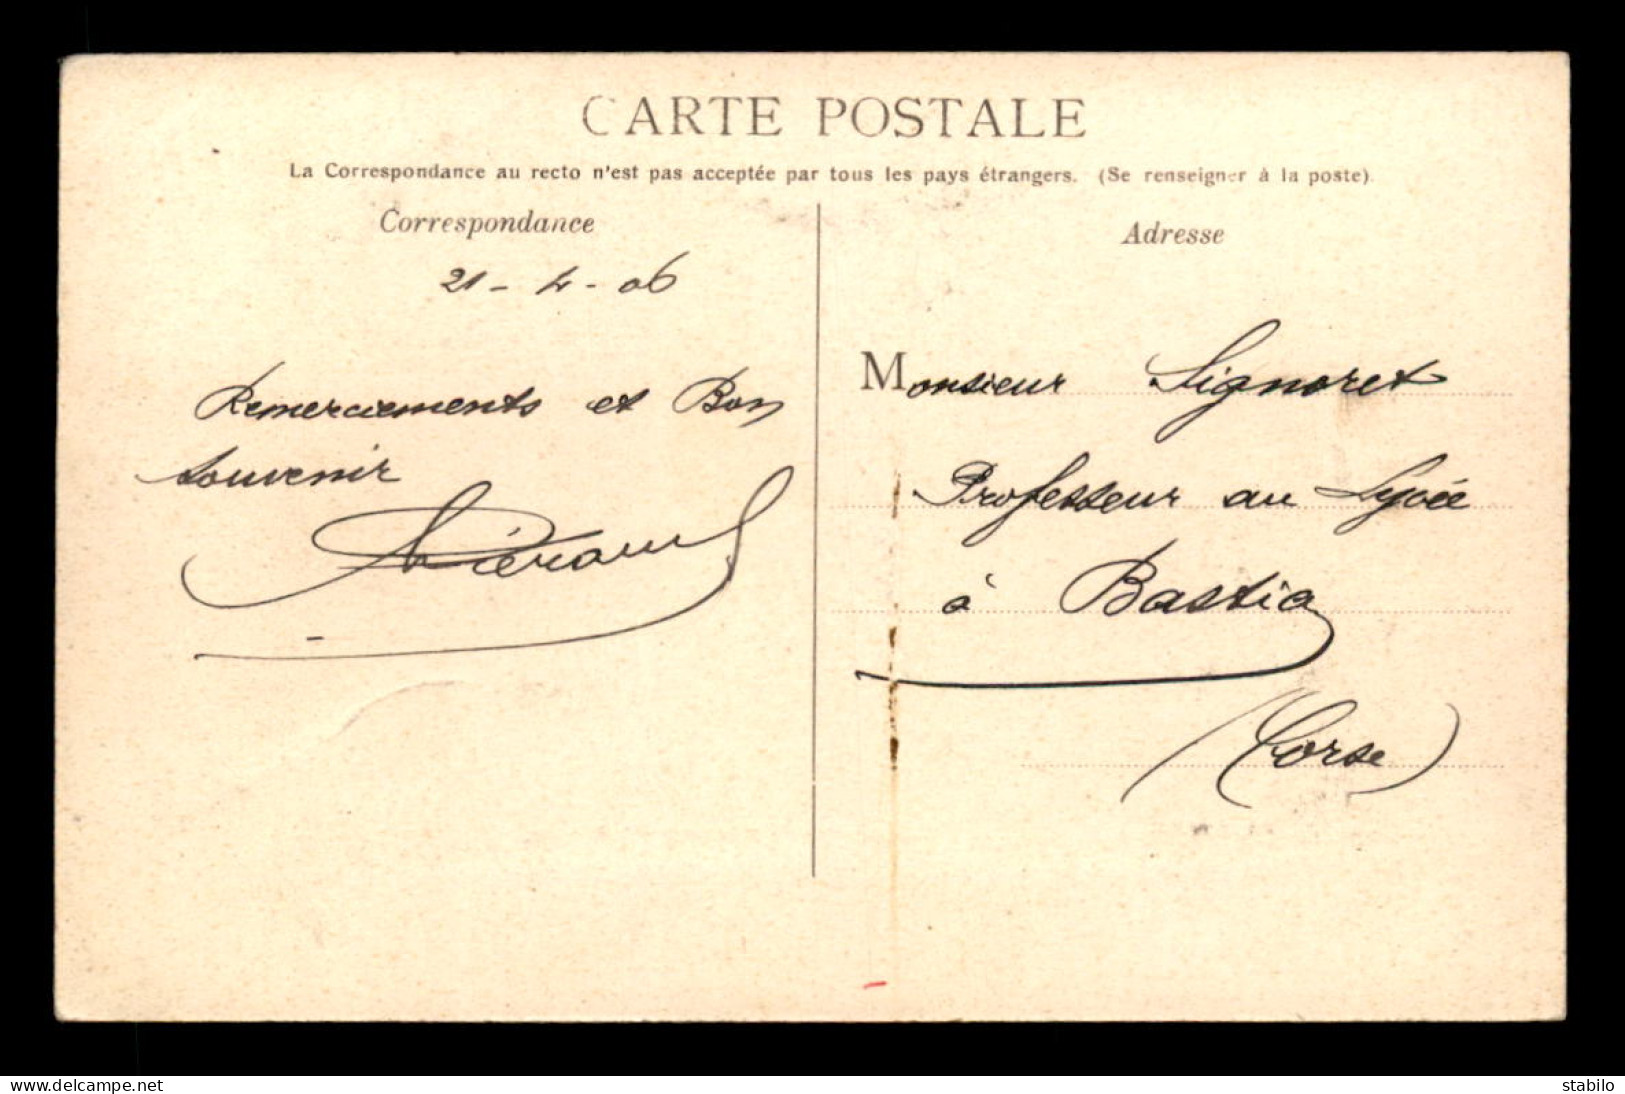 CARTE POSTALE
La Correspondance au recto n'est pas acceptée par tous les pays étrangers. (Se renseigner à la poste).
Correspondance
21 - 4 - 06
Remerciements et Bon
souvenir
Adresse
Monsieur Signoret
Professeur au Lycée
à Bastia
(Corse)
delcampe.net
stabilo